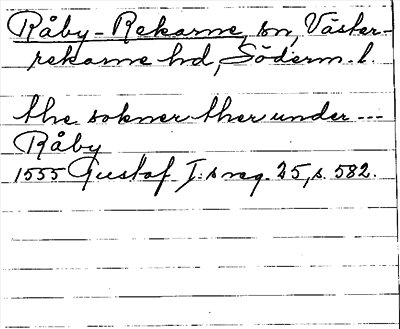 Råby-Rekarne, sn, Väster-
rekarne hd, Söderm. l.
the sokner ther under ---
Råby
1555 Gustaf I:s reg. 25, s. 582.